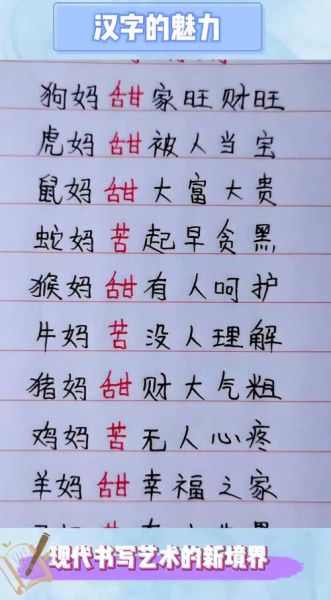 汉字的魅力
狗妈 甜 家旺财旺
虎妈 甜 被人当宝
鼠妈 甜 大富大贵
蛇妈 苦 起早贪黑
猴妈 甜 有人呵护
牛妈 苦 没人理解
猪妈 甜 财大气粗
鸡妈 苦 无人心疼
羊妈 甜 幸福之家
现代书写艺术的新境界